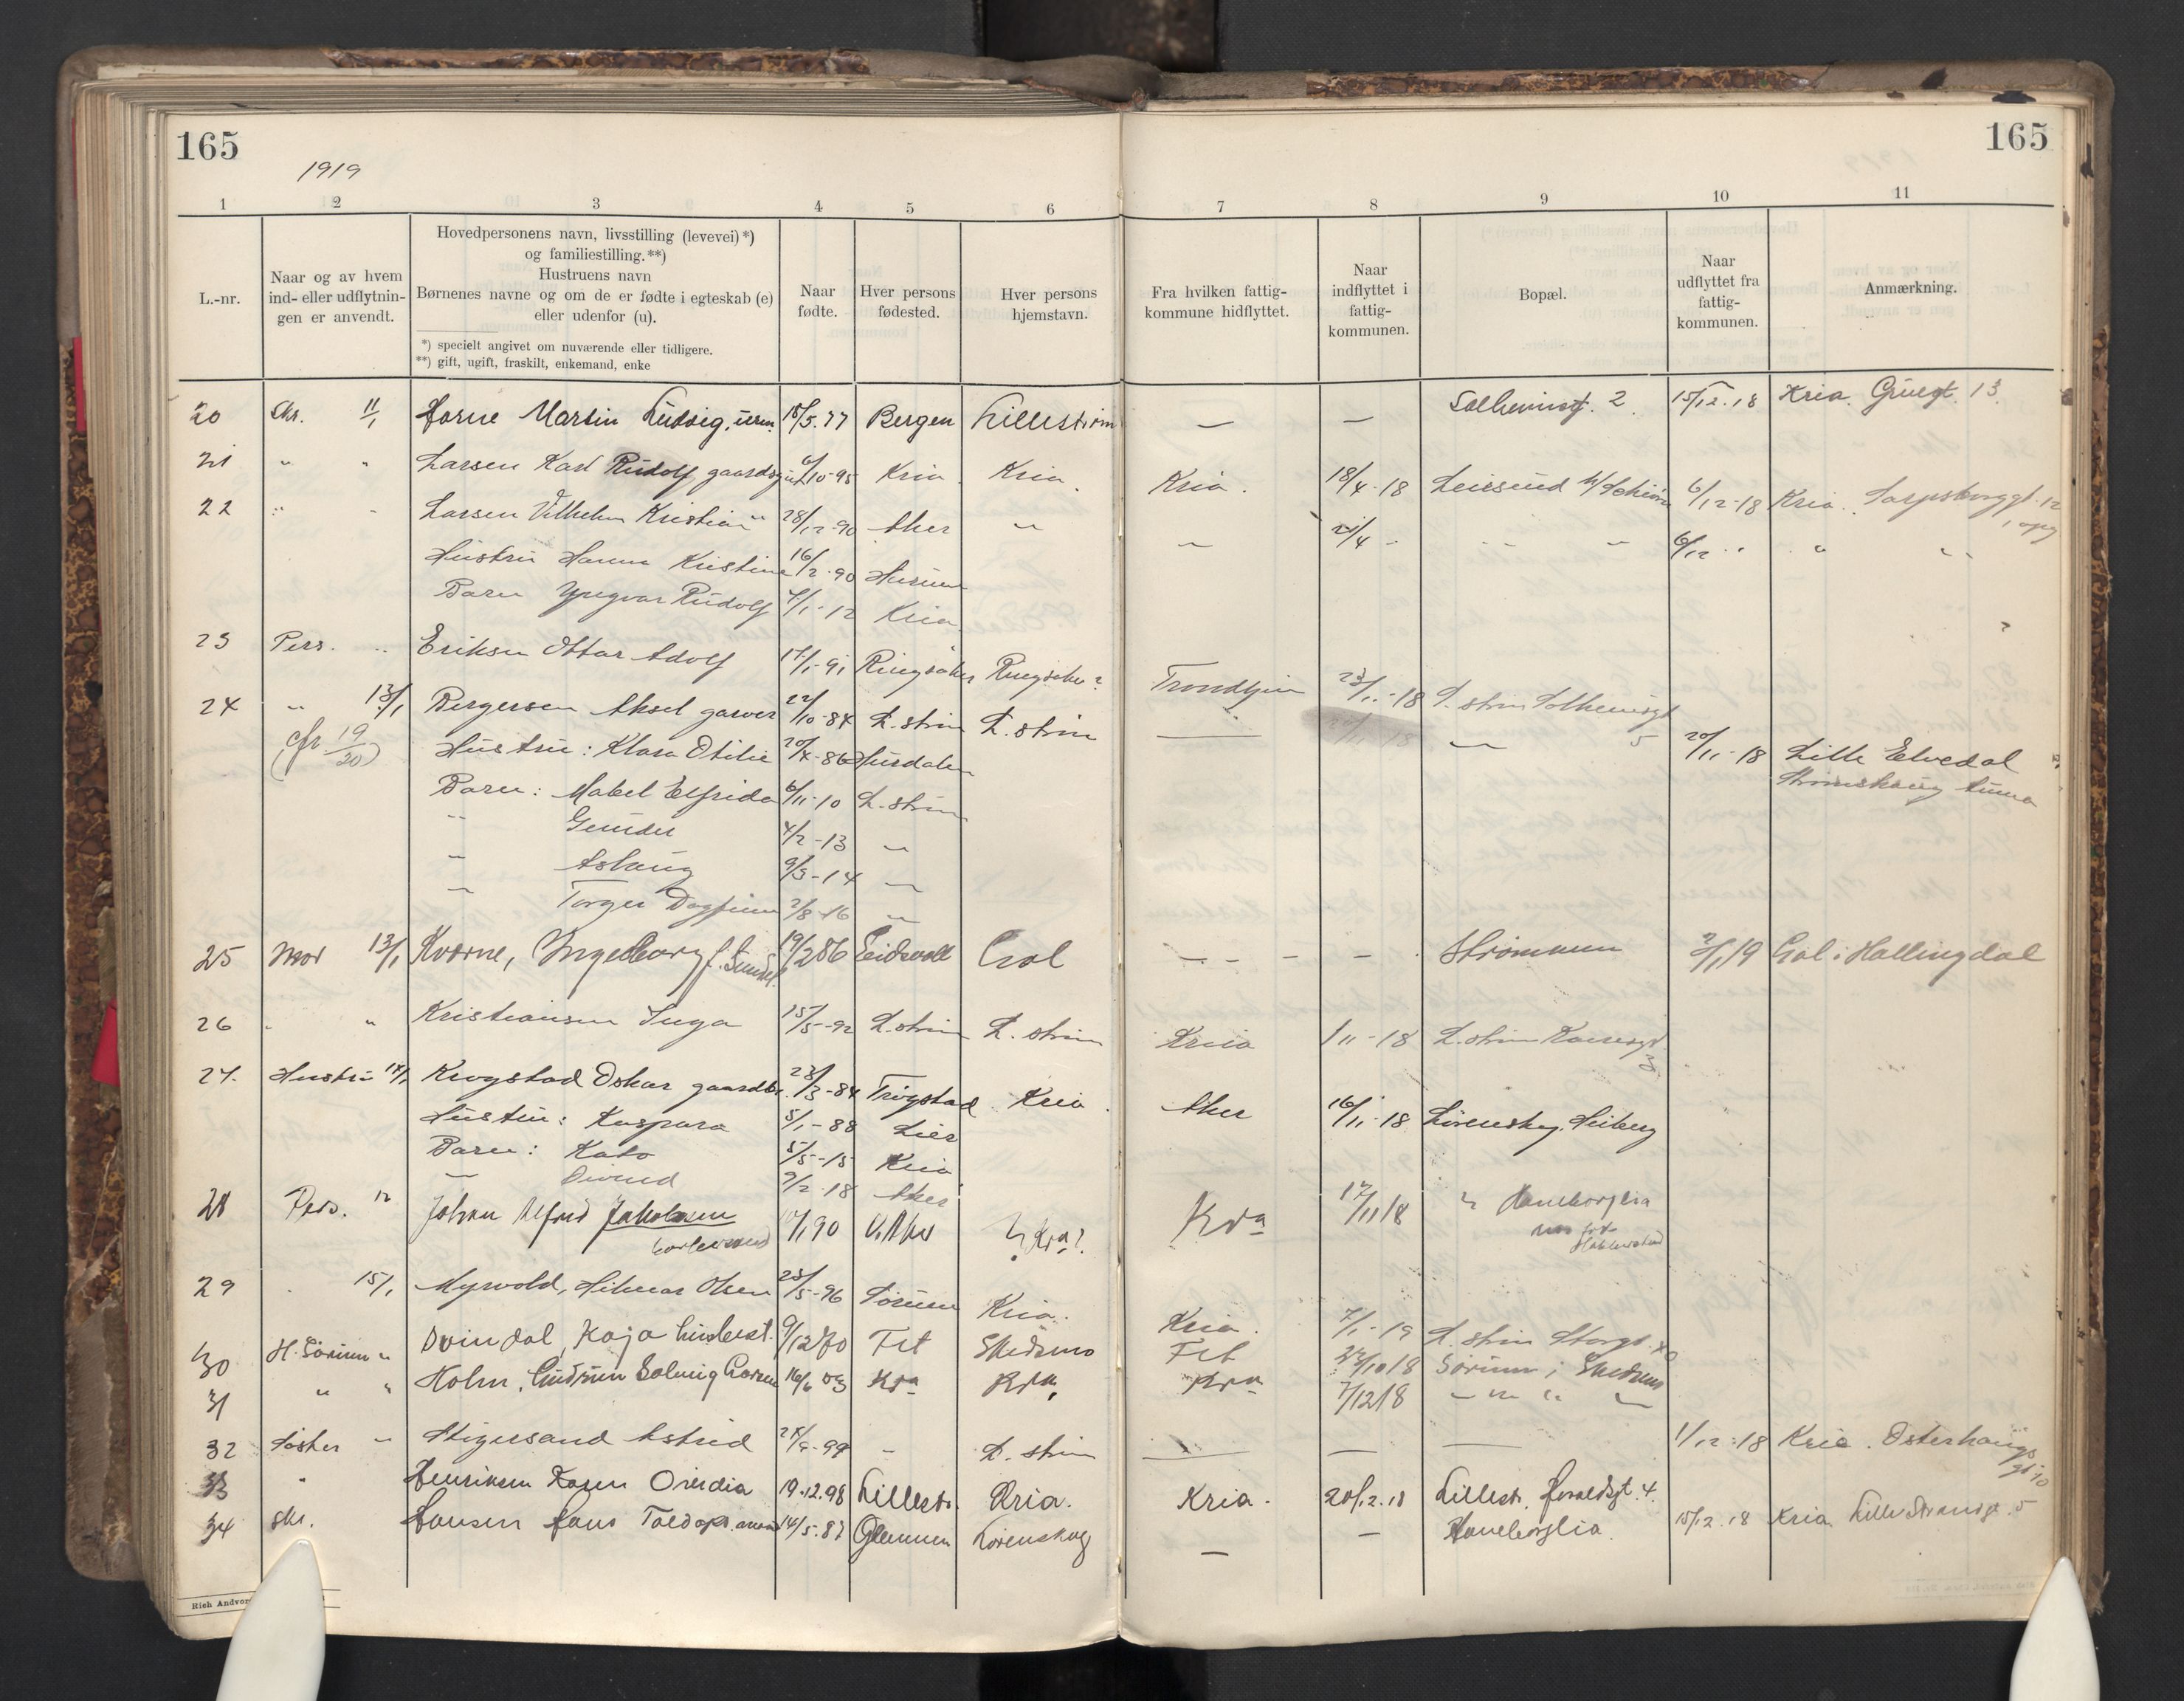 165
165
1919
1 2 3 4 5 6 7 8 9 10 11
L.-nr.
Naar og av hvem
ind- eller udflytnin-
gen er anvendt.
Hovedpersonens navn, livsstilling (levevei) *)
og familiestilling. **)
Hustruens navn
Børnenes navne og om de er fødte i egteskab (e)
eller udenfor (u).
*) specielt angivet om nuværende eller tidligere.
**) gift, ugift, fraskilt, enkemand, enke
Naar
fødte.
Hver persons
fødested.
Hver persons
hjemstavn.
Fra hvilken fattig-
kommune hidflyttet.
Naar
indflyttet i
fattig-
kommunen.
Bopæl.
Naar
udflyttet fra
fattig-
kommunen.
Anmærkning.
20 Skr. 11/1 Horne Martin Ludvig, urm. 15/5.77 Bergen Lillestrøm — — Solheimsgt. 2. 15/12.18 Kria. Grüegt. 13
21 " " Larsen Karl Rudolf gaardsgut 6/10-95 Kria. Kria. Kria. 18/4-18 6/12-18 Kria. Sarpsborggt. 12
22 " " Larsen Vilhelm Kristian " 28/12-90 Aker " " 21/4 - " " 6/12 " " "
Hustru Hanna Kristine 16/2-90 Hurum
Barn Yngvar Rudolf 4/1-12 Kria.
23 Pers. " Eriksen Ottar Adolf 17/1-91 Ringsaker Ringsaker? Trondhjem 23/11-18 L.strøm Solheimsgt 5
24 " 13/1 Bergersen Aksel garver 22/10-84 L.strøm L.strøm — " 20/11-18 Lille Elvedal
(cfr 19/20) Hustru: Klara Otilie 20/4-86 Hurdalen
Barn: Mabel Elfrida 6/11-10 L.strøm
" 4/2-13 "
" Aslaug 9/3-14 "
" Torger Dagfinn 2/8-16 "
25 Mor 13/1 Kværne, Ingeborg 19/2 86 Eidsvold Gol - - - - - Strømmen 2/1 19 Gol i Hallingdal
26 " " Kristiansen Inga 15/5-92 L.strøm L.strøm Kria 1/11-18 L.strøm 3
27. Hustru 14/1 Krogstad Oskar gaardbr. 23/3-84 Trøgstad Kria. Aker 16/11-18 Lørenskog. Heiberg
Hustru: Kaspara 5/1-88 Lier
Barn: Kato 5/5-15 Kria
" Øivind 9/2-18 Aker
28 Pers. " Johan Alfred Jakobsen 90 V. Aker Kra? Kra 17/11 18 " Haneborglia
29 " 15/1 Myrvold, Hilmar Olsen 23/5-96 Sørum Kria. Kria. 7/1-19 L.strøm Storgt.
30 H. Sørum " Dvindal, Kaja 9/12 70 Fet Skedsmo Fet 10 18 Sørum i Skedsmo
31 " " Holm, Gudrun Solveig Larsen 16/6 03 Kra Kra Kra 7/12 18 " " " "
32 Søster " Stigersand Astrid 99 - L.strøm — — — 1/12-18 Kria. Osterhausgt. 10
33 " Henriksen Karen Ovidia 19.12.98 Lillestr. Kria. Kria. 20/12.18 Lillestr. 4.
34 Skr. Hansen Hans 14/5.83 Glemmen Lørenskog — — Haneborglia. 15/12.18 Kria Lille Strandgt. 5